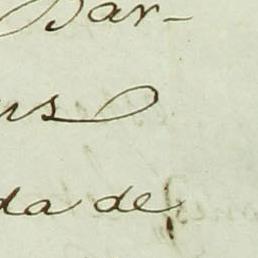 Bar-
us
da de